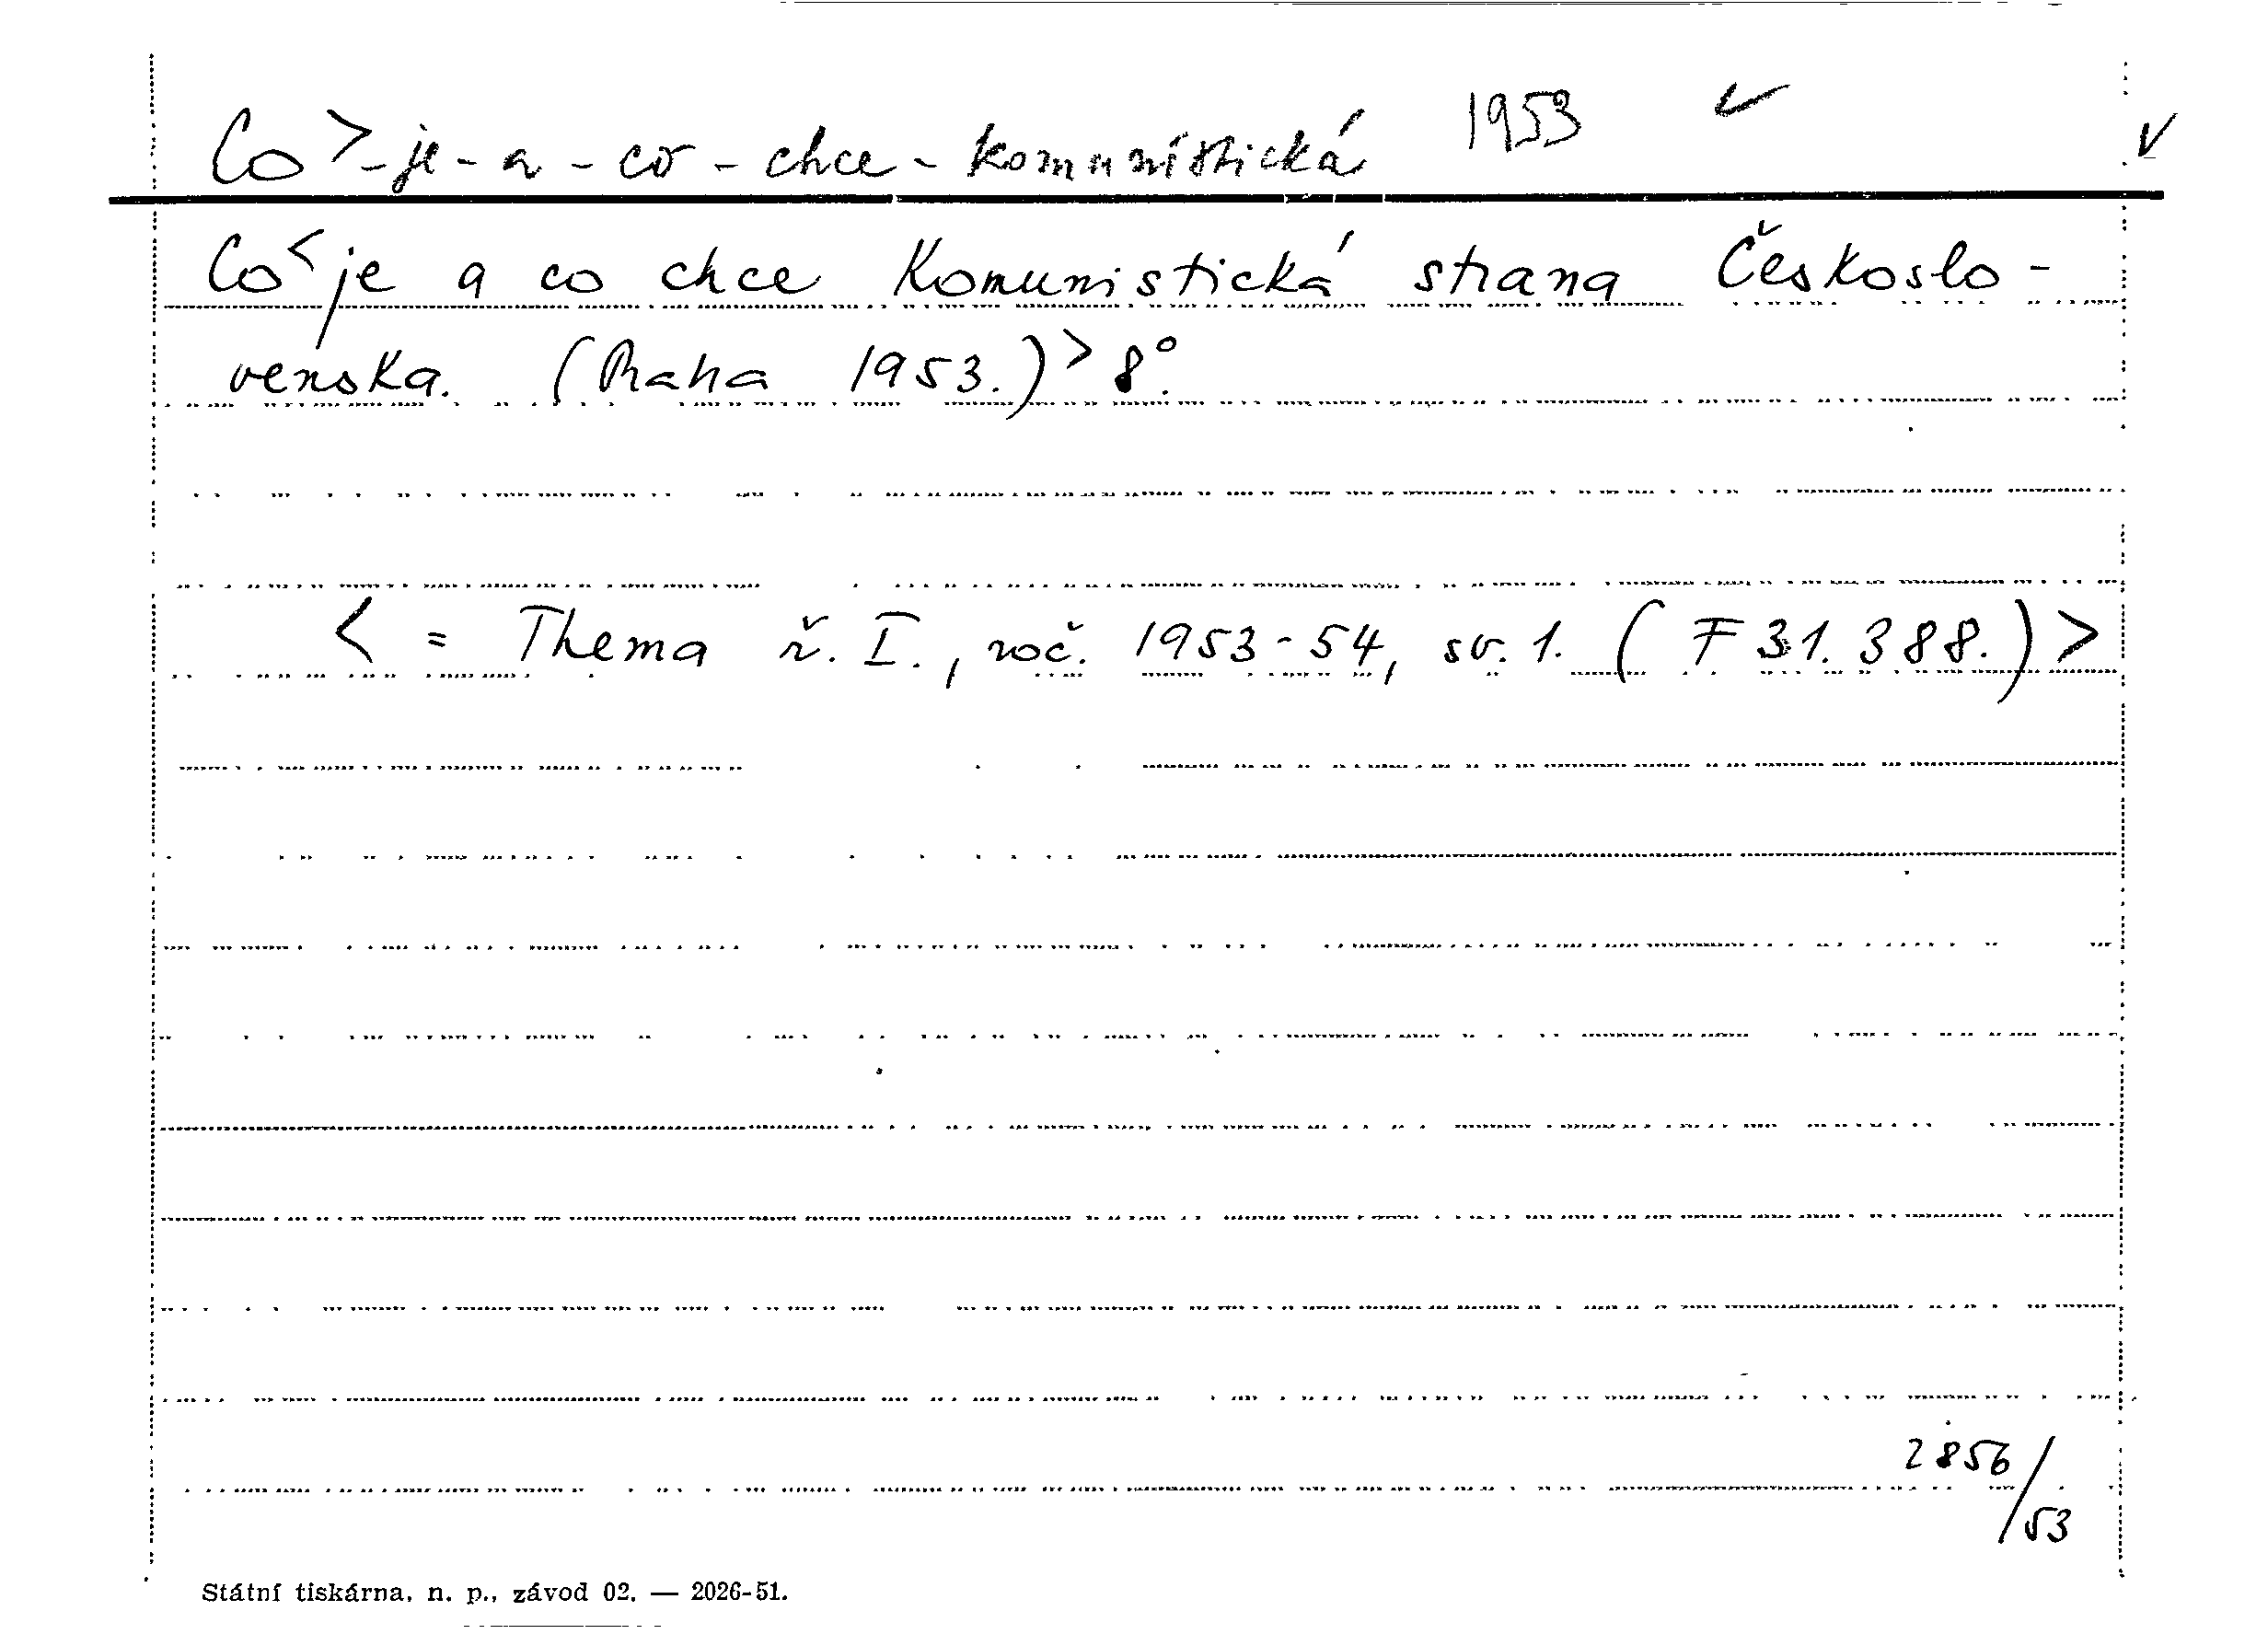 Co > - je - a - co - chce - komunistická 1953 ✓ ✓
Co < je a co chce Komunistická strana Českoslo-
venska. (Praha 1953.) > 8°.
< = Thema ř. I., roč. 1953-54, sv. 1. (F 31.388.) >
2856/53
Státní tiskárna, n. p., závod 02. — 2026-51.